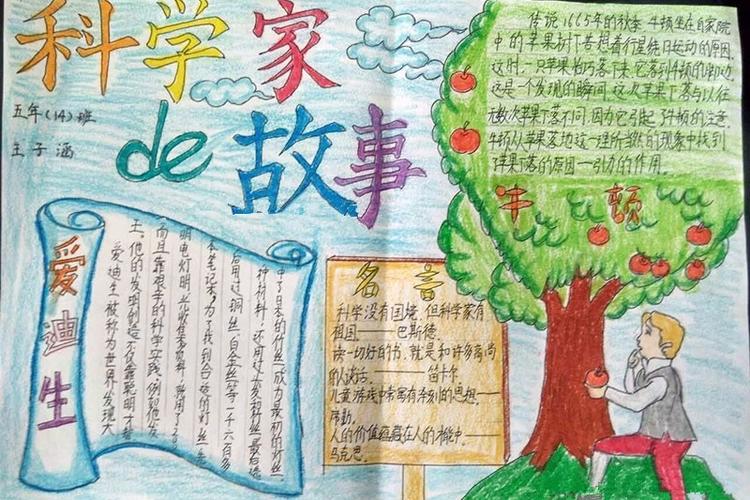 科学家
de 故事
五年(14)班
王子涵
传说1665年的秋季 牛顿坐在自家院
中的苹果树下苦想着行星绕日运动的原因.
这时,一只苹果恰巧落下来,它落到牛顿的脚边.
这是一个发现的瞬间,这次苹果下落与以往
无数次苹果下落不同,因为它引起了牛顿的注意.
牛顿从苹果落地这一理所当然的现象中找到
苹果下落的原因—引力的作用.
牛顿
爱迪生
爱迪生被称为世界发明大
王。他的发明创造不仅靠聪明才智
而且靠艰辛的科学实践,例如他发
明电灯时
为了找到合适的灯丝
后用过铜丝、白金丝等一千六百多
种材料,
中了日本的竹丝 成为最初的灯丝
名言
科学没有国境,但科学家有
祖国.——巴斯德.
读一切好的书,就是和许多高尚
的人谈话.——笛卡尔.
儿童游戏中常寓有深刻的思想.——
席勒.
人的价值蕴藏在人的才能中.——
马克思.